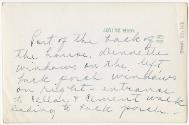 Part of the back of
the house, Dinette
windows on the left
back porch windows
on right - entrance
to cellar & cement walk
leading to back porch.